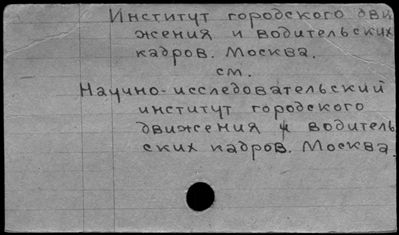 Институт городского дви
жения и водительских
кадров. Москва.
см.
Научно-исследовательский
институт городского
движения и водитель
ских кадров. Москва.